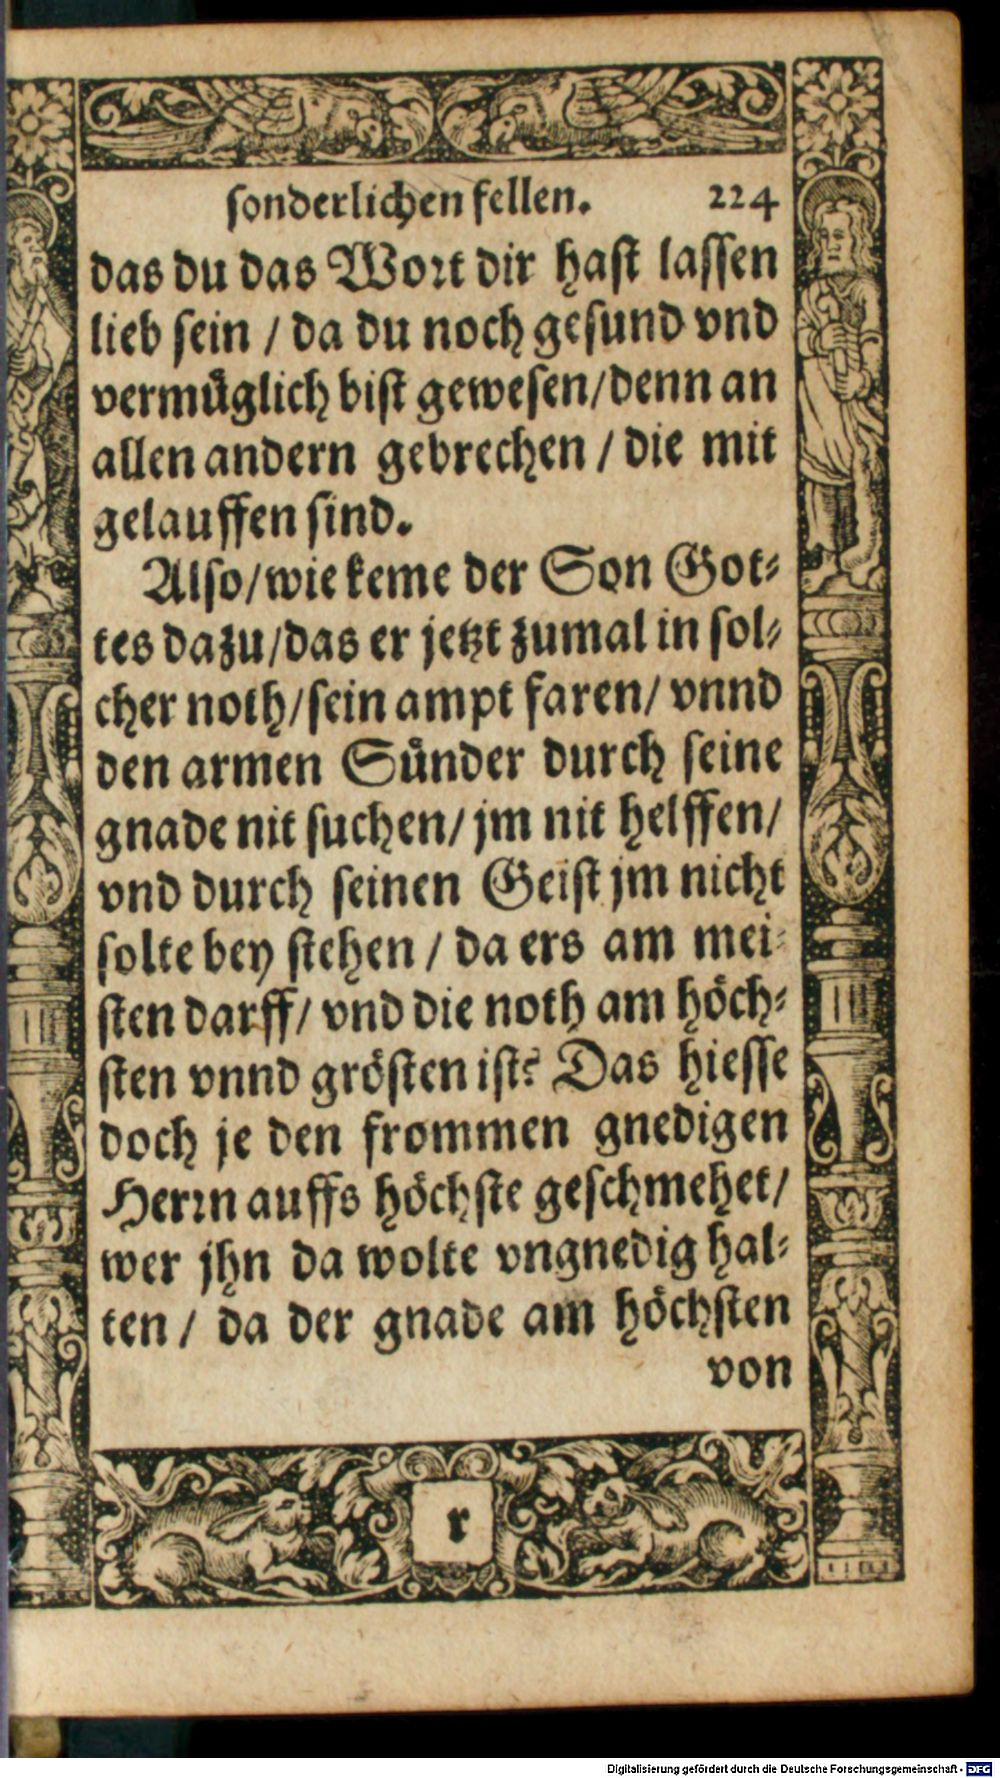 sonderlichen fellen. 224
das du das Wort dir hast lassen
lieb sein / da du noch gesund vnd
vermüglich bist gewesen/denn an
allen andern gebrechen / die mit
gelauffen sind.
Also/wie keme der Son Got-
tes dazu/das er jetzt zumal in sol-
cher noth/sein ampt faren/ vnnd
den armen Sünder durch seine
gnade nit suchen/ jm nit helffen/
vnd durch seinen Geist jm nicht
solte bey stehen / da ers am mei-
sten darff/ vnd die noth am höch-
sten vnnd grösten ist? Das hiesse
doch je den frommen gnedigen
Herrn auffs höchste geschmehet/
wer jhn da wolte vngnedig hal-
ten / da der gnade am höchsten
von
r
Digitalisierung gefördert durch die Deutsche Forschungsgemeinschaft - DFG